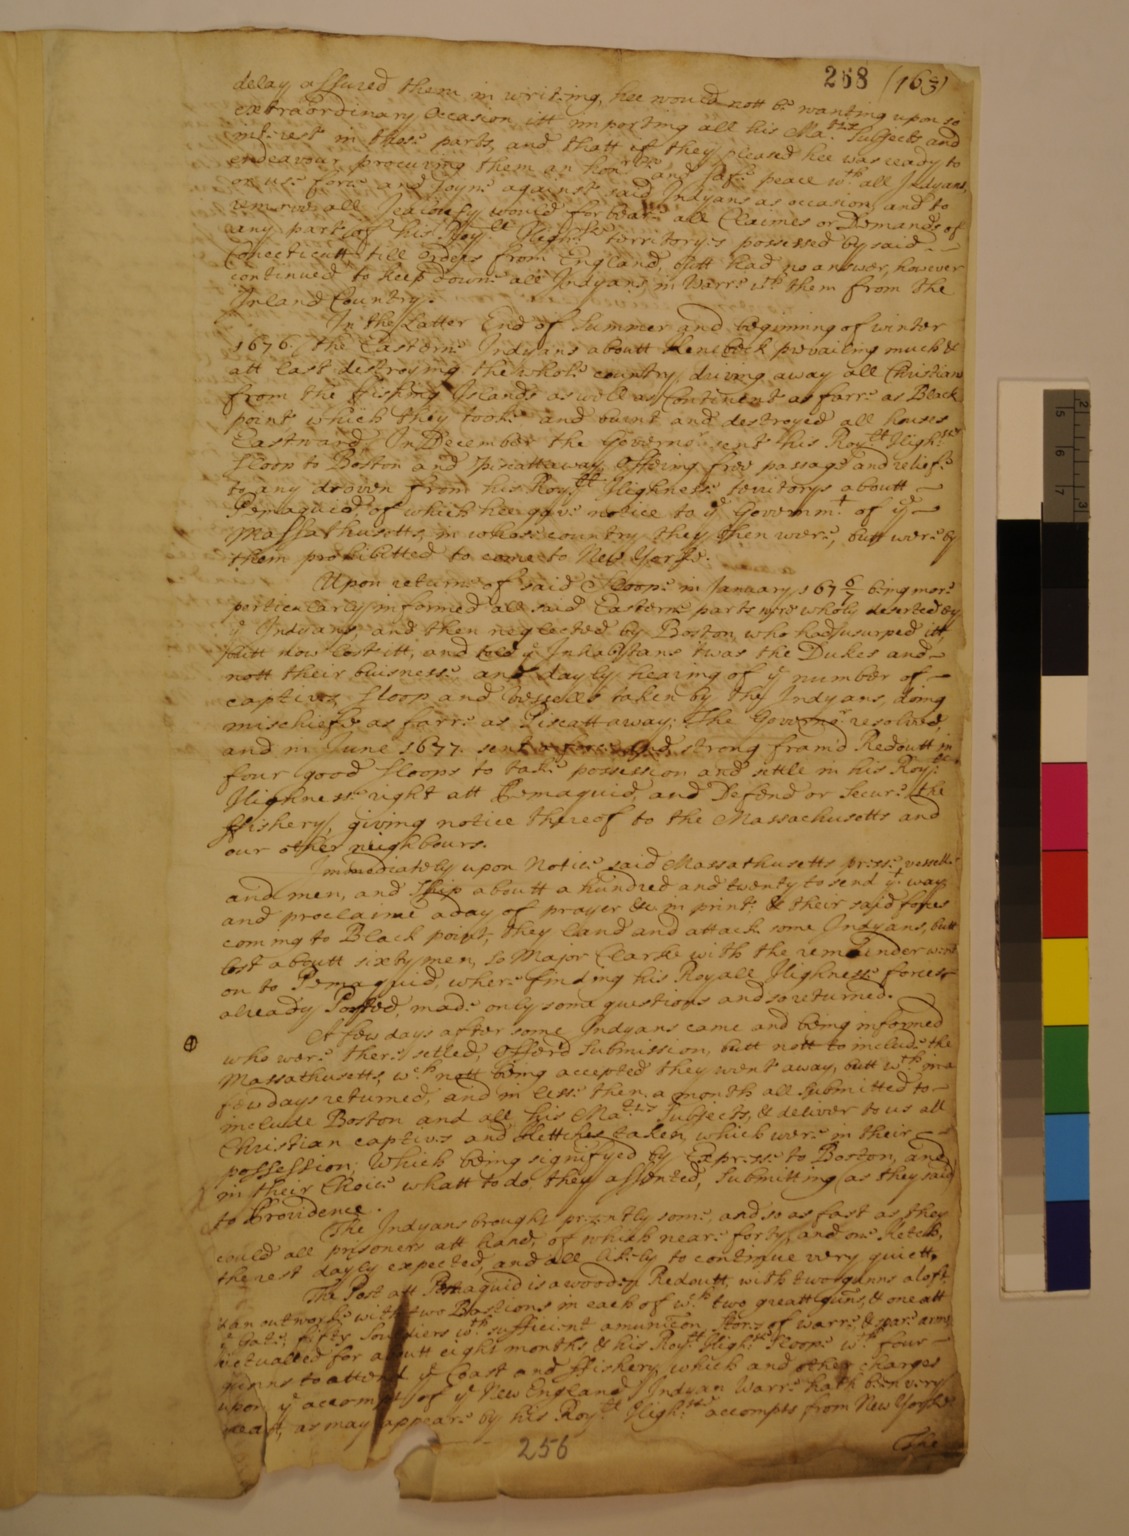 268 (163)
delay assured them in writing, hee would nott be wanting upon so
extraordinary Occasion itt importing all his Ma.ties Subjects and
interest in those parts, and thatt if they pleased hee was ready to
endeavour procuring them an hon.ble and safe peace w.th all Indyans,
or use force and Joyne against said Indyans as occasion, and to
remove all Jealousy would forbeare all Claimes or Demands of
any part of his Roy.ll Highn.sse territorys possessed by said
Conecticutt till orders from England, butt had no answer, however
continued to keep downe all Indyans in Warre w.th them from the
Inland Country.
In the Latter End of Summer and beginning of winter
1676. the Easterne Indyans aboutt Kenebeck prevailing much &
att last destroying the whole country, driving away all Christians
from the ffishing Islands as well as Continent as farre as Black
point which they tooke and burnt and destroyed all houses
Eastward, In December the Governor sent his Roy.ll High.sse
Sloop to Boston and Piscattaway, Offering free passage and reliefe
to any droven from his Roy.ll Highnesse territorys aboutt
Pemaquid, of which hee gave notice to ye Governm.t of ye
Massathusetts, in whose country they then were, butt were by
them prohibitted to come to New Yorke.
Upon returne of said Sloope in January, 167 6/7 being more
perticularly informed all said Easterne parts were wholy deserted by
ye Indyans, and then neglected by Boston, who had usurped itt
butt now lost itt, and told ye Inhabitans 'twas the Dukes and
nott their buisnesse, and dayly hearing of ye number of
captives, sloop and vessells taken by the Indyans, doing
mischiefe as farre as Piscattaway: The Governor resolved
and in June 1677. sent a force and strong fram'd Redoutt in
four good sloops to take possession and settle in his Roy.ll
Highnesse right att Pemaquid, and Defend or Secure the
ffishery, giving notice thereof to the Massachusetts and
our other neighbours.
Immediately upon Notice said Massathusetts presse vessells
and men, and Ship aboutt a hundred and twenty to send yt way
and proclaime a day of prayer &c in print: & their said forces
coming to Black point, they land and attack some Indyans, butt
lost aboutt sixty men, so Major Clarke with the remainder went
on to Pemaquid, where finding his Royall Highnesse forces
already Posted, made only some questions and so returned.
A few days after some Indyans came and being informed
who were there setled, Offer'd Submission, butt nott to include the
Massathusetts, w.ch nott being accepted they went away, butt w.thin a
few days returned, and in lesse then a month all submitted to
include Boston and all his Ma.ties Subjects, & deliver to us all
Christian captives and Ketches taken which were in their
possession; Which being signifyed by Expresse to Boston, and
in their Choice whatt to do they assented, Submitting (as they said)
to Providence.
The Indyans brought presently some, and so as fast as they
could all prisoners att hand, of which neare forty, and one Ketch,
the rest dayly expected, and all likely to continue very quiett.
The Post att Pemaquid is a wooden Redoutt, with two gunns aloft
& an outworke with two Bastions in each of w.ch two greatt guns, & one att
ye Gate; fifty Souldiers w.th sufficient amunicon, stores of warre, & spare armes
victualled for aboutt eight months & his Roy.ll High.sse Sloope w.th four
gunns to attend ye Coast and ffishery, which and other charges
upon ye accompt of ye New England Indyan Warre hath been very
great, as may appeare by his Roy.ll High.sse accompts from New Yorke.
The
256